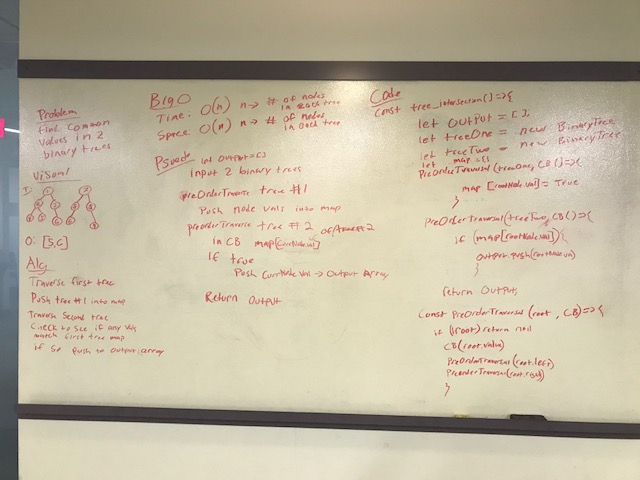 Problem
find common
values in 2
binary trees
Visual
I:
O: [5,C]
Alg
Traverse first tree
Push tree #1 into map
Traverse second tree
Check to see if any vals
match first tree map
if so push to output array
Big O
Time: O(n) n → # of nodes
in each tree
Space: O(n) n → # of nodes
in each tree
Psuedo let output = []
Input 2 binary trees
preOrderTraverse tree #1
Push node vals into map
preorderTraverse tree #2
in CB map[CurrNodeVal] of tree 2
If true
Push CurrNodeVal → Output Array
Return Output
Code
Const tree_intersection() => {
let OUTPUT = [];
let treeOne = new BinaryTree
let treeTwo = new BinaryTree
let map = {}
PreOrderTraversal(treeOne, CB() => {
map [rootNode.val] = True
}
PreOrderTraversal(treeTwo, CB() => {
if (map[rootNode.val]) {
output.push(rootNode.val)
}
return Output;
Const PreOrderTraversal (root, CB) => {
if (!root) return null
CB(root.value)
PreOrderTraversal(root.left)
PreOrderTraversal(root.right)
}